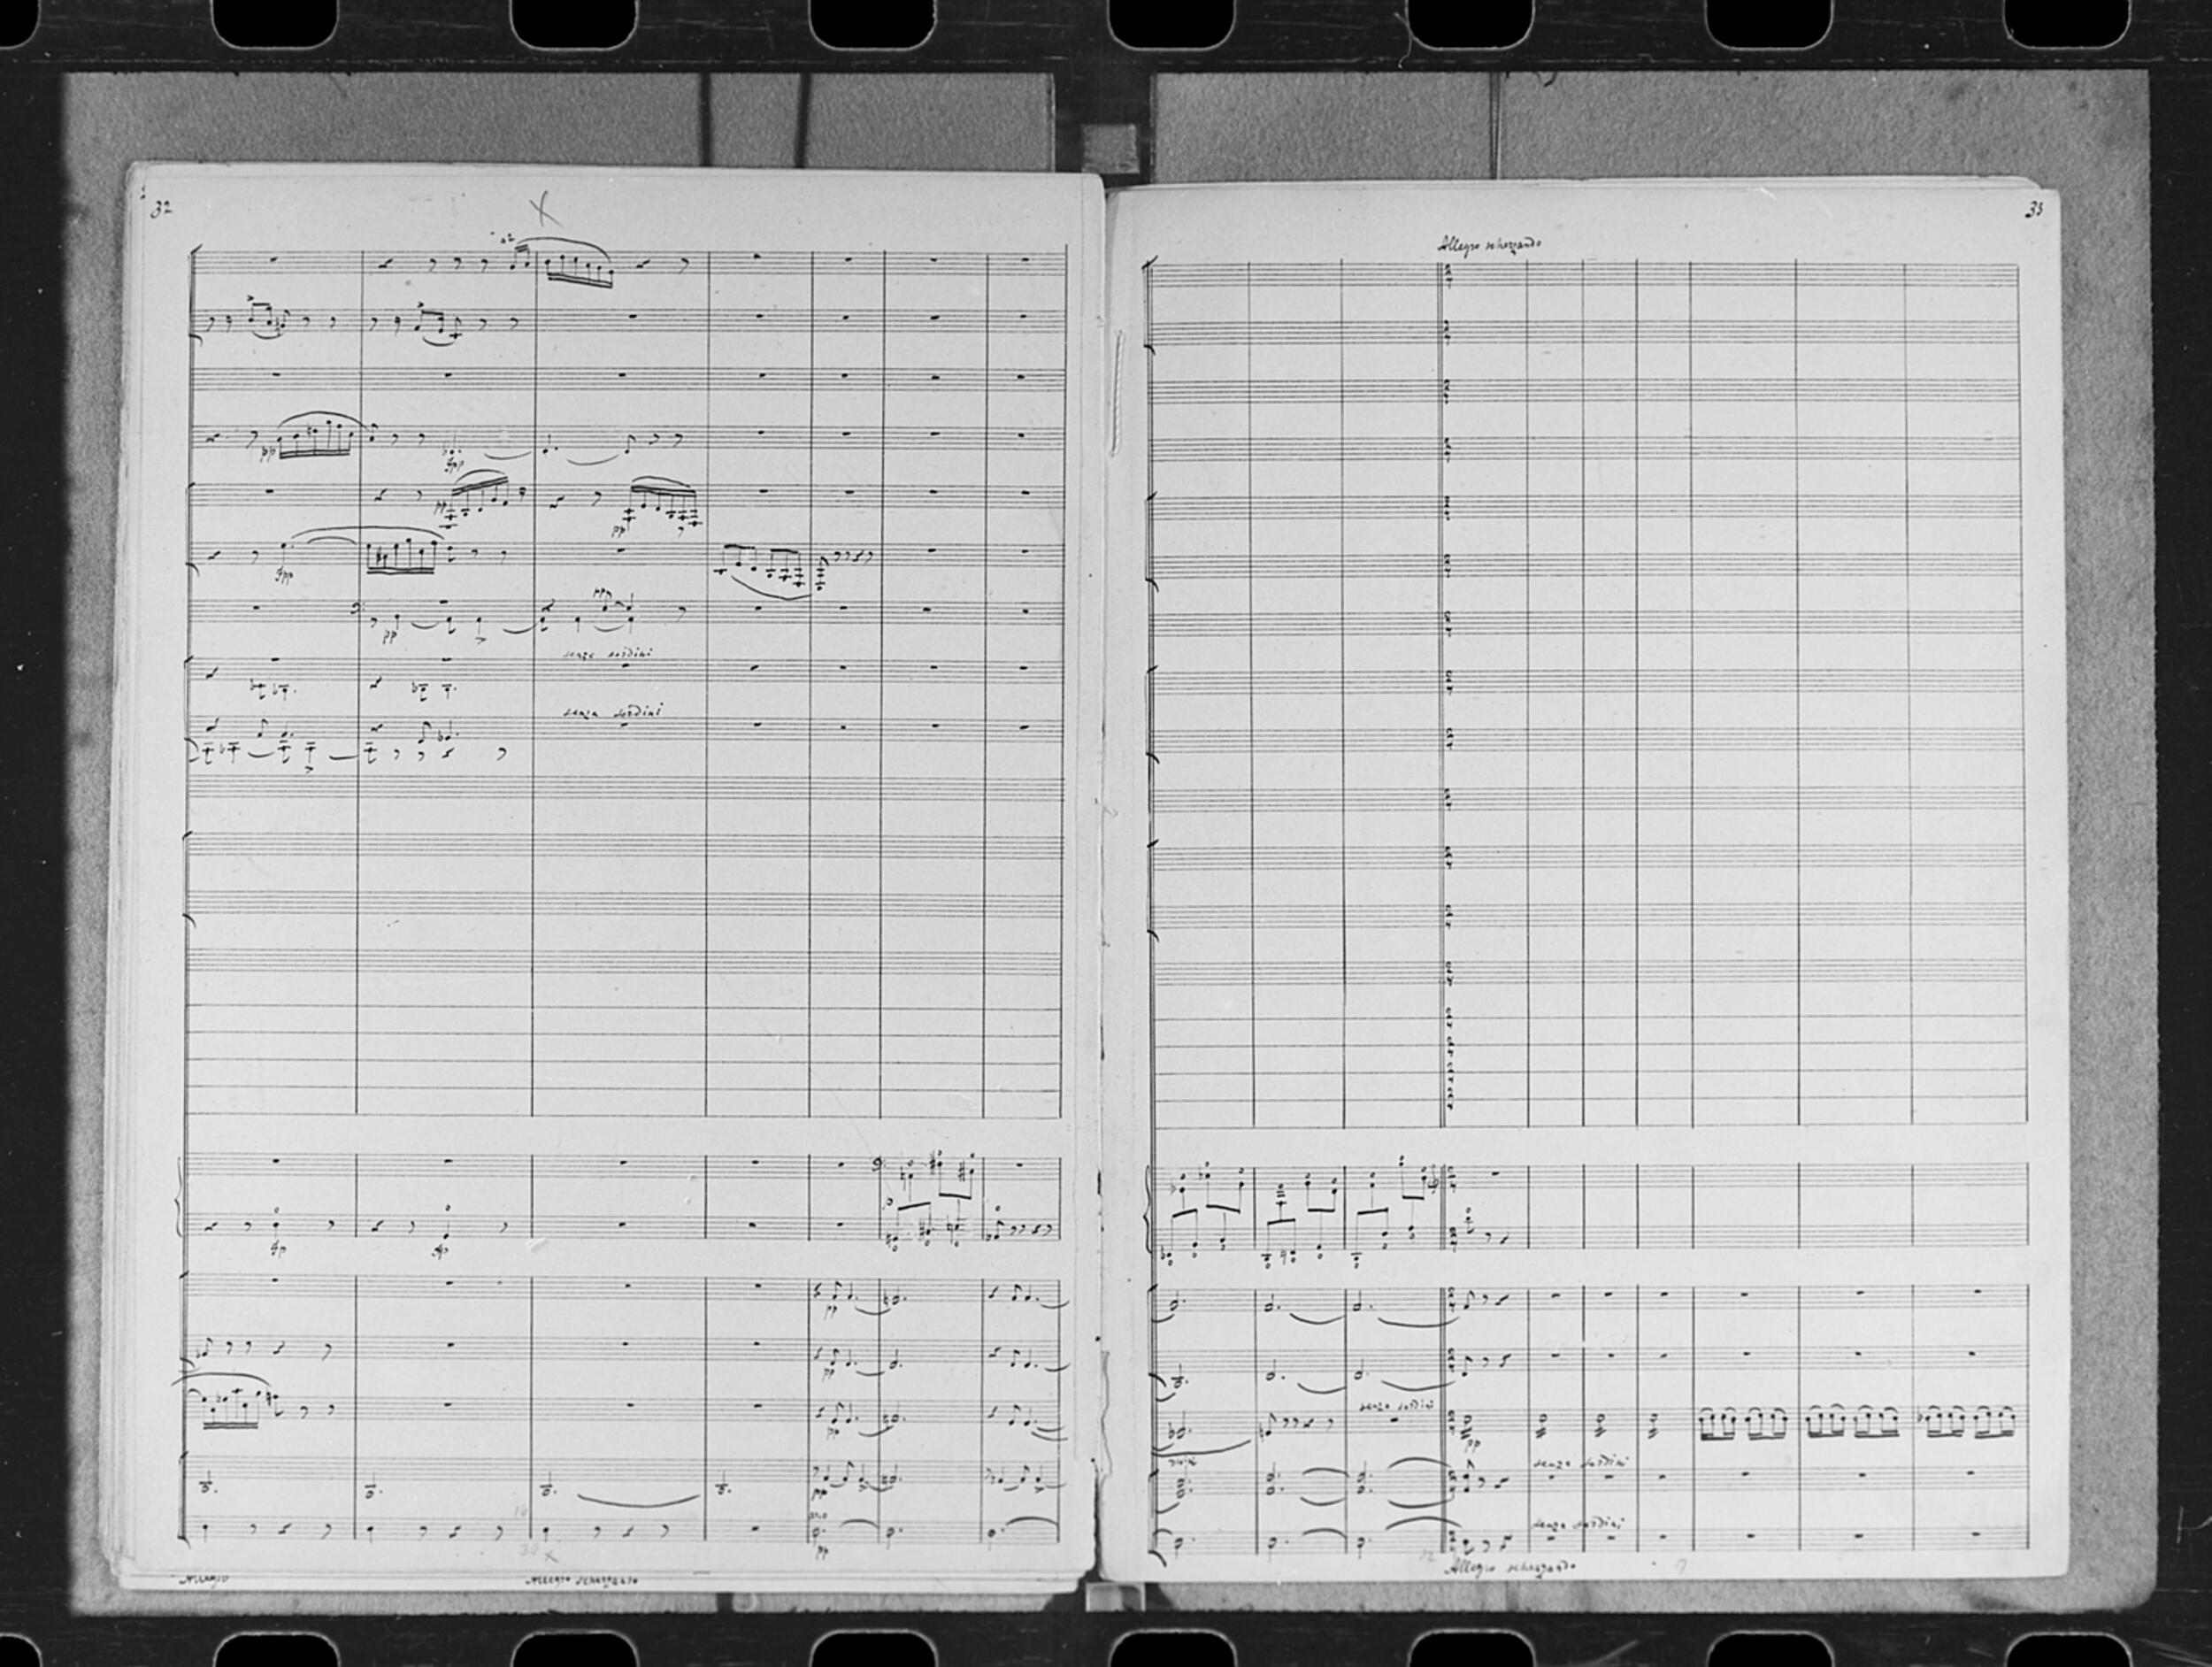 32
X
a2
pp
fpp
pp
pp
fpp
pp
pp
senza sordini
senza sordini
fp fp
pp
pp
pp
pp
pp
X
Allegro Allegro scherzando
33
Allegro scherzando
senza sordini
pp
senza sordini
senza sordini
Allegro scherzando